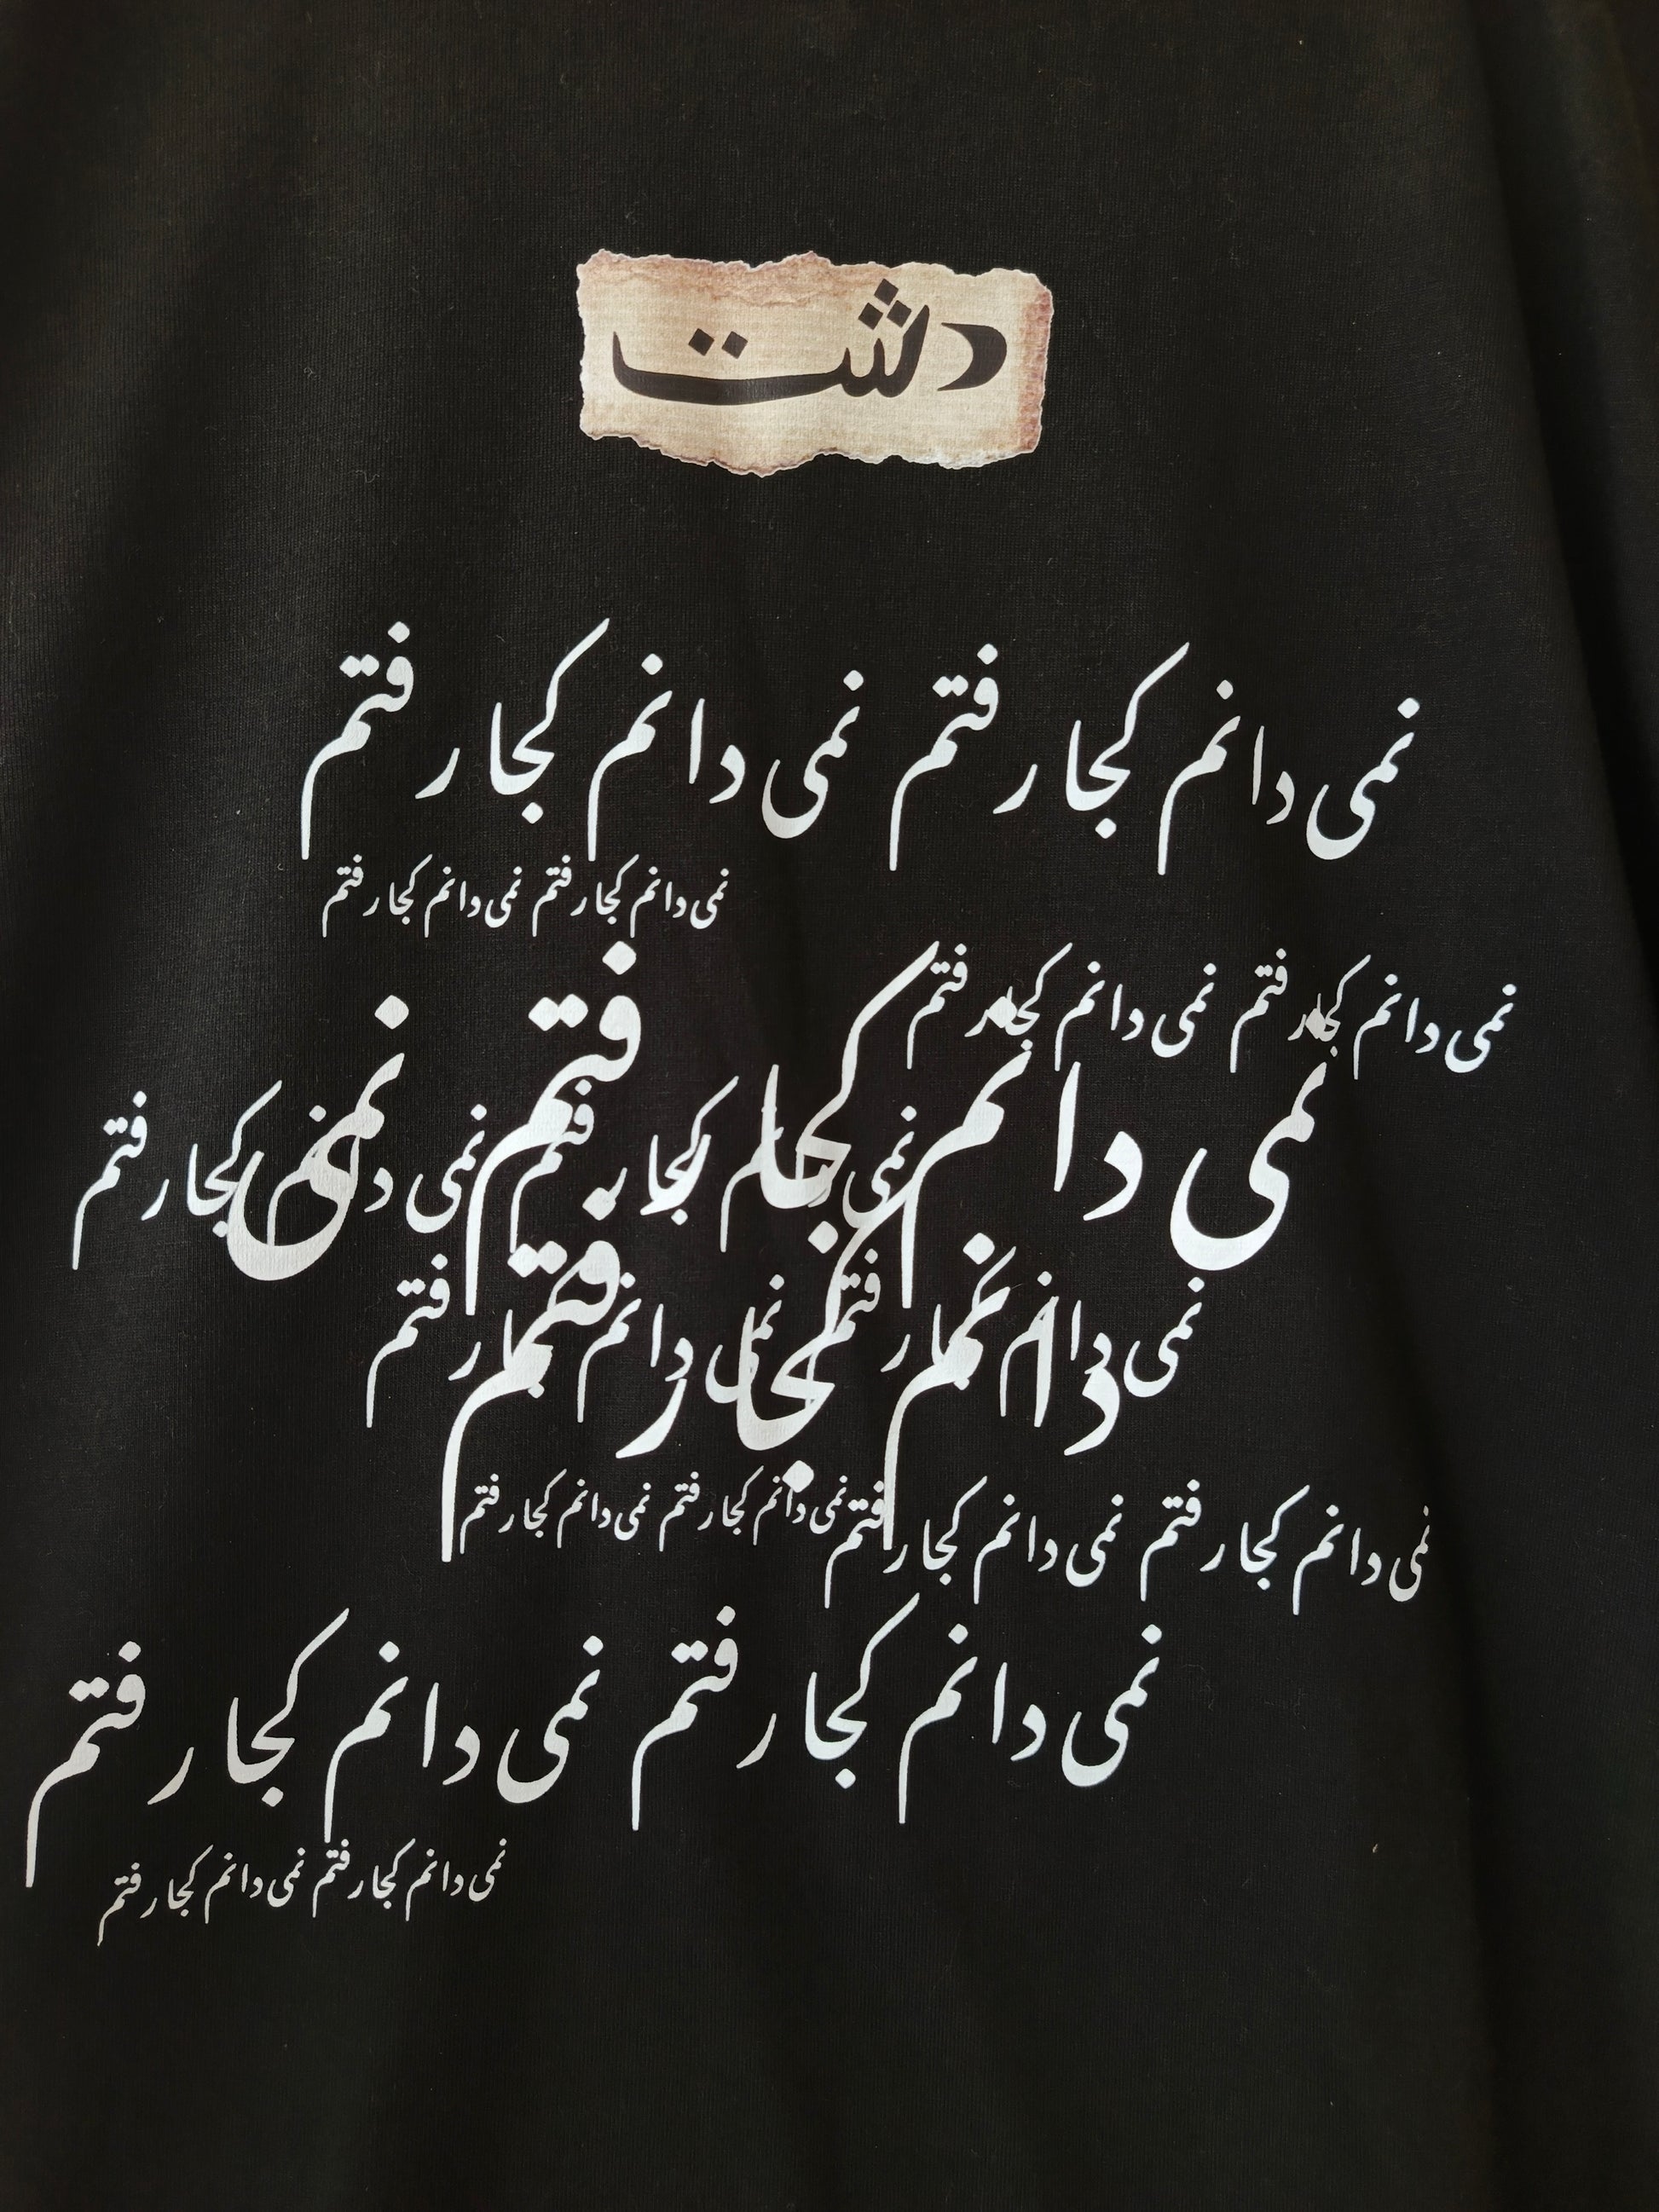 دشت
نمی دانم کجا رفتم نمی دانم کجا رفتم
نمی دانم کجا رفتم نمی دانم کجا رفتم
نمی دانم کجا رفتم نمی دانم کجا رفتم
نمی دانم کجا رفتم نمی
نمی دانم کجا رفتم نمی دانم کجا رفتم
دانم کجا رفتم
نمی دانم کجا رفتم نمی دانم کجا رفتم
نمی دانم کجا رفتم نمی دانم کجا رفتم
نمی دانم کجا رفتم نمی دانم کجا رفتم
نمی دانم کجا رفتم نمی دانم کجا رفتم
نمی دانم کجا رفتم نمی دانم کجا رفتم